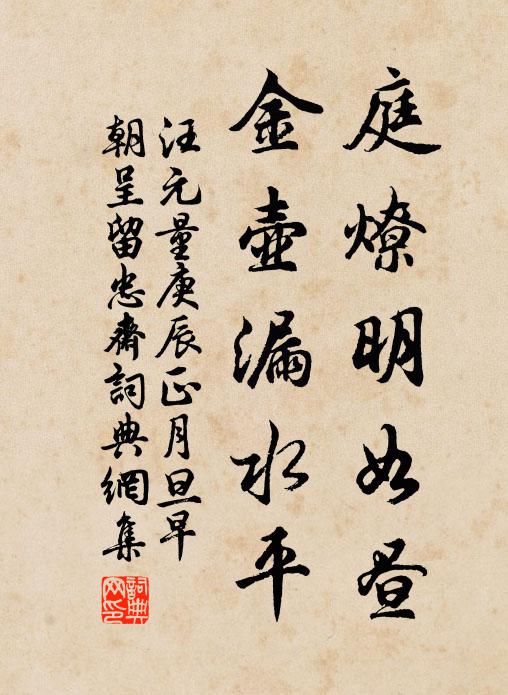 庭燎明如昼
金壺漏水平
汪元量庚辰正月旦早
朝呈留忠齋詞典網集
詞典网印